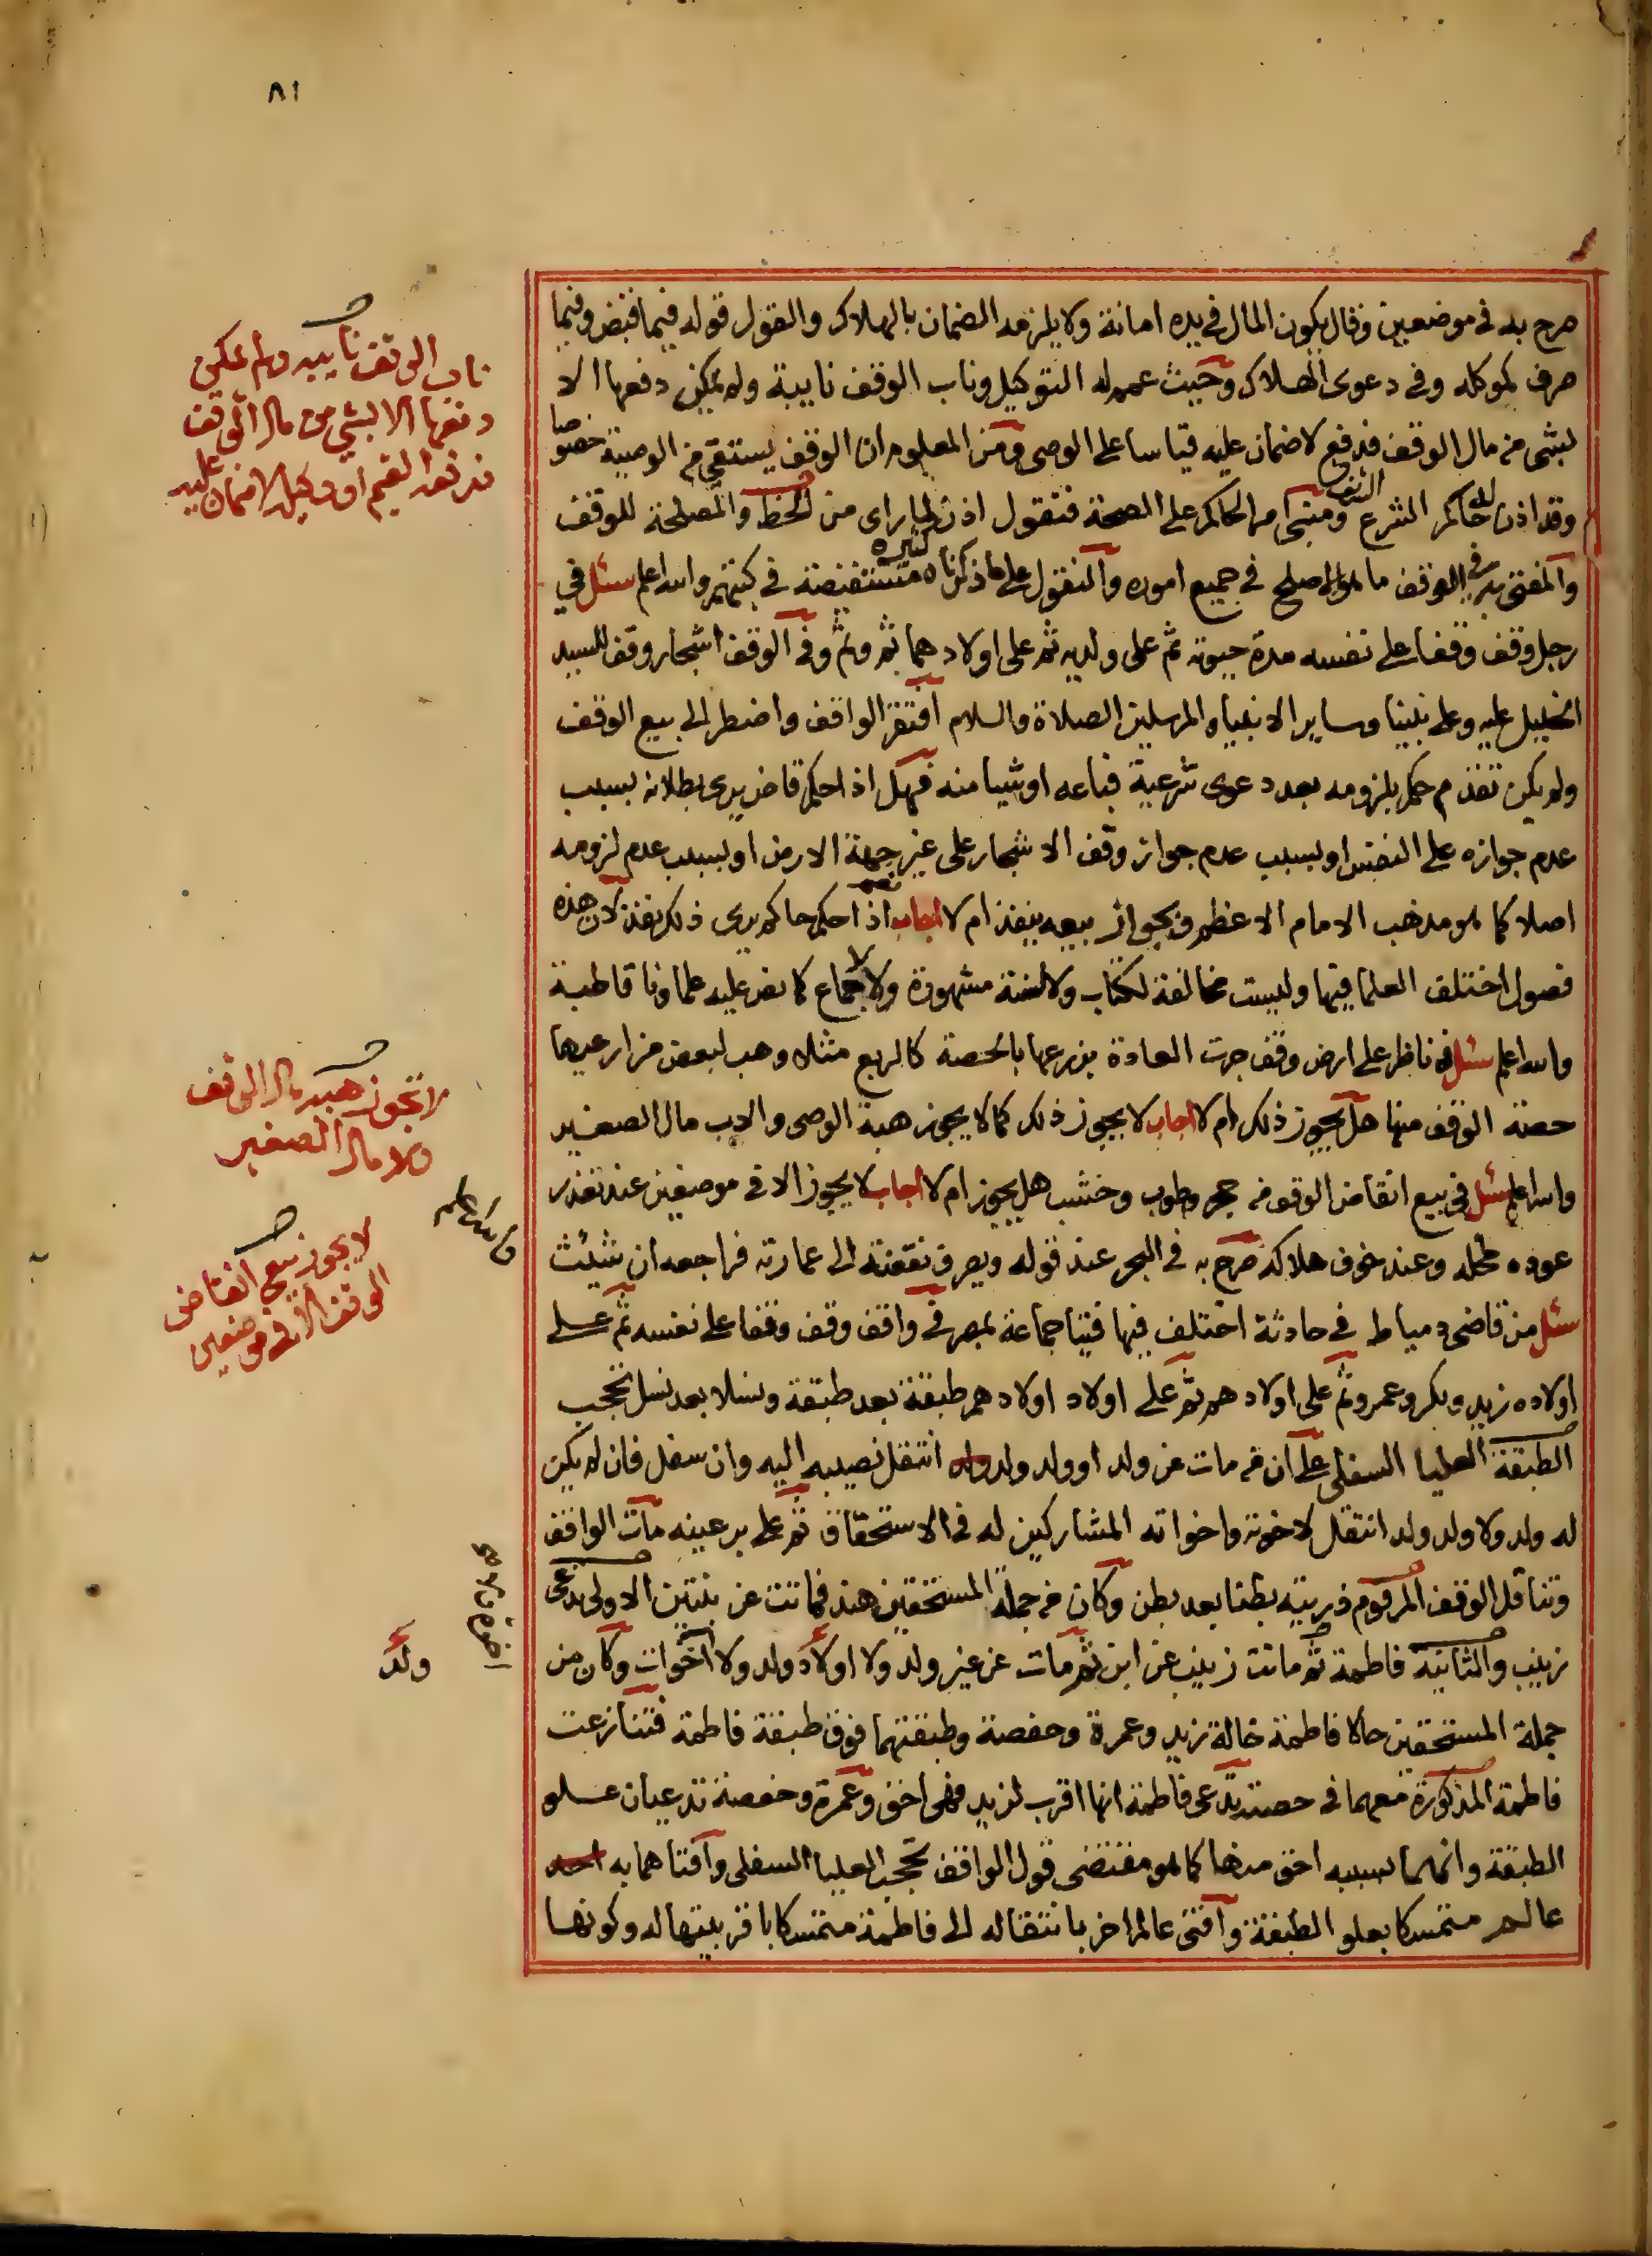 ٨١
صرح به في موضعين وقال يكون المال في يده امانة ولا يلزمه الضمان بالهلاك والقول قوله فيما قبض وفيما
صرف لموكله وفي دعوى الهلاك وحيث عمم له التوكيل وناب الوقف نايبة ولم يمكن دفعها الا
بشى من مال الوقف فدفع لا ضمان عليه قياسا على الوصى ومن المعلوم ان الوقف يستقى من الوصية خصوصا
وقد اذن له حاكم الشرع الشريف ومبنى امر الحاكم على الصحة فنقول اذن لما راى من الحظ والمصلحة للوقف
والمفتى به في الوقف ما هو الاصلح في جميع اموره والنقول على ما ذكرناه كثيرة مستفيضة في كتبهم والله اعلم سئل في
رجل وقف وقفا على نفسه مدة حيوته ثم على ولديه ثم على اولادهما ثم وثم وفي الوقف اشجار وقف للسيد
الخليل عليه وعلى نبينا وساير الانبياء والمرسلين الصلاة والسلام افتقر الواقف واضطر الى بيع الوقف
ولم يكن تقدم حكم بلزومه بعد دعوى شرعية فباعه او شيا منه فهل اذا حكم قاض يرى بطلانه بسبب
عدم جوازه على النفس او بسبب عدم جواز وقف الاشجار على غير جهة الارض او بسبب عدم لزومه
اصلا كما هو مذهب الامام الاعظم وبجواز بيعه ينفذ ام لا اجاب نعم اذا حكم حاكم يرى ذلك نفذ لان هذه
فصول اختلف العلما فيها وليست مخالفة لكتاب ولا لسنة مشهورة ولا لاجماع كما نص عليه علماونا قاطبة
والله اعلم سئل في ناظر على ارض وقف جرت العادة بزرعها بالحصة كالربع مثلا وهب لبعض مزارعيها
حصة الوقف منها هل يجوز ذلك ام لا اجاب لا يجوز ذلك كما لا يجوز هبة الوصى والاب مال الصغير
والله اعلم سئل في بيع انقاض الوقف من حجر وطوب وخشب هل يجوز ام لا اجاب لا يجوز الا في موضعين عند تعذر
عوده لمحله وعند خوف هلاكه صرح به في البحر عند قوله ويصرف نقضه الى عمارته فراجعه ان شيئت
سئل من قاضى دمياط في حادثة اختلف فيها فتيا جماعة بمصر في واقف وقف وقفا على نفسه ثم على
اولاده زيد وبكر وعمرو ثم على اولادهم ثم على اولاد اولادهم طبقة بعد طبقة ونسلا بعد نسل تحجب
الطبقة العليا السفلى على ان من مات عن ولد او ولد ولد انتقل نصيبه اليه وان سفل فان لم يكن
له ولد ولا ولد ولد انتقل لاخوته واخواته المشاركين له في الاستحقاق ثم على بر عينه مات الواقف
وتناقل الوقف المرقوم ذريته بطنا بعد بطن وكان من جملة المستحقين هند فماتت عن بنتين الاولى تدعى
زينب والثانية فاطمة ثم ماتت زينب عن ابن ثم مات عن غير ولد ولا اولاد ولد ولا اخوات وكان من
جملة المستحقين حالا فاطمة خالة زيد وعمرة وحفصة وطبقتهما فوق طبقة فاطمة فتنازعت
فاطمة المذكورة معهما في حصته تدعى فاطمة انها اقرب لزيد فهى احق وعمرة وحفصة تدعيان علو
الطبقة وانهما بسببه احق منها كما هو مقتضى قول الواقف تحجب العليا السفلى وافتاهما به
عالم متمسكا بعلو الطبقة وافتى عالم اخر بانتقاله الى فاطمة متمسكا باقربيتها له وكونها
ناب الوقف نايبه ولم يمكن
دفعها الا بشي من مال الوقف
فدفعه القيم او وكيله لا ضمان عليه
لا تجوز هبة مال الوقف
ولا مال الصغير
والله اعلم
لا يجوز بيع انقاض
الوقف الا في موضعين
ولد